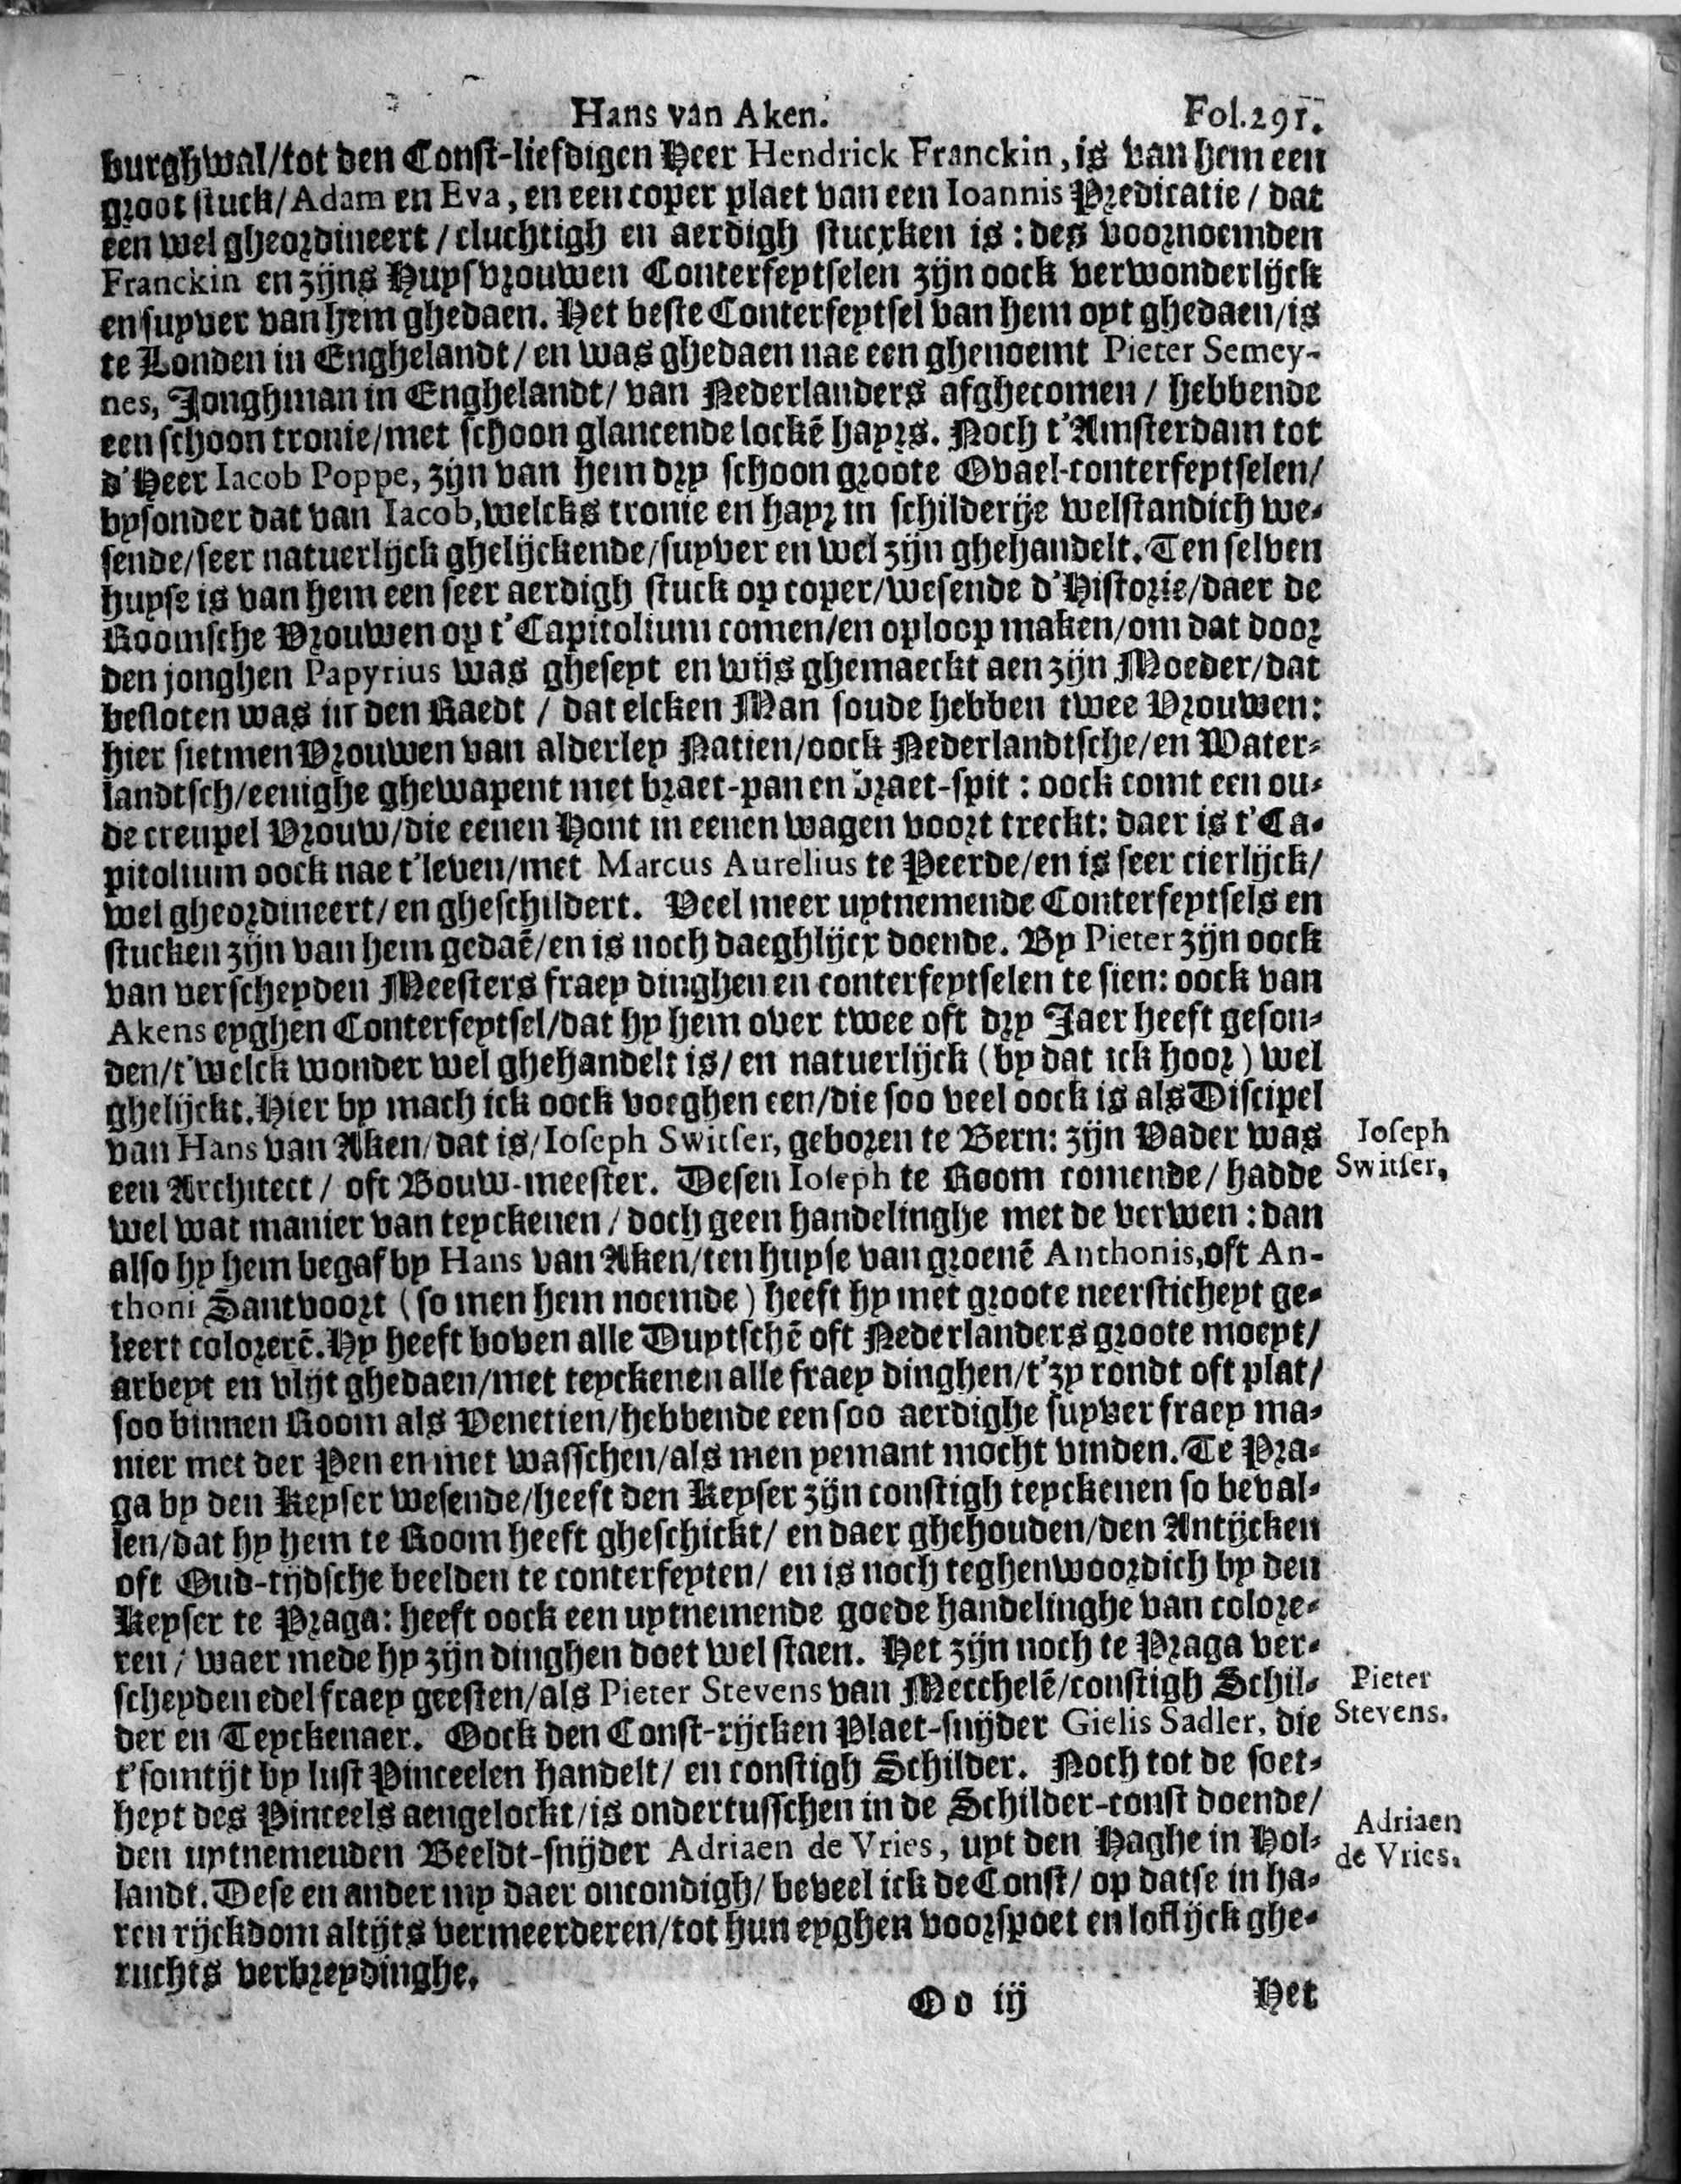 Hans van Aken. Fol.291.
burghwal/tot den Const-liefdigen Heer Hendrick Franckin, is van hem een
groot stuck/Adam en Eva, en een coper plaet van een Ioannis Predicatie/ dat
een wel gheordineert/ cluchtigh en aerdigh stucxken is: des voornoemden
Franckin en zijns Huysvrouwen Conterfeytselen zijn oock verwonderlijck
en suyver van hem ghedaen. Het beste Conterfeytsel van hem oyt ghedaen/is
te Londen in Enghelandt/ en was ghedaen nae een ghenoemt Pieter Semey-
nes, Jonghman in Enghelandt/ van Nederlanders afghecomen/ hebbende
een schoon tronie/met schoon glancende lockē hayrs. Noch t'Amsterdam tot
d'Heer Iacob Poppe, zijn van hem dry schoon groote Ovael-conterfeytselen/
bysonder dat van Iacob, welcks tronie en hayr in schilderije welstandich we-
sende/seer natuerlijck ghelijckende/suyver en wel zijn ghehandelt. Ten selven
huyse is van hem een seer aerdigh stuck op coper/wesende d'Historie/daer de
Roomsche Vrouwen op t'Capitolium comen/en oploop maken/om dat door
den jonghen Papyrius was gheseyt en wijs ghemaeckt aen zijn Moeder/dat
besloten was in den Raedt/ dat elcken Man soude hebben twee Vrouwen:
hier sietmen Vrouwen van alderley Natien/oock Nederlandtsche/en Water-
landtsch/eenighe ghewapent met braet-pan en braet-spit: oock comt een ou-
de creupel Vrouw/die eenen Hont in eenen wagen voort treckt: daer is t'Ca-
pitolium oock nae t'leven/met Marcus Aurelius te Peerde/en is seer cierlijck/
wel gheordineert/ en gheschildert. Veel meer uytnemende Conterfeytsels en
stucken zijn van hem gedaē/en is noch daeghlijcx doende. By Pieter zijn oock
van verscheyden Meesters fraey dinghen en conterfeytselen te sien: oock van
Akens eyghen Conterfeytsel/dat hy hem over twee oft dry Jaer heeft geson-
den/t'welck wonder wel ghehandelt is/ en natuerlijck (by dat ick hoor) wel
ghelijckt. Hier by mach ick oock voeghen een/die soo veel oock is als Discipel
van Hans van Aken/dat is/Ioseph Switser, geboren te Bern: zijn Vader was
Ioseph
Switser.
een Architect/ oft Bouw-meester. Desen Ioseph te Room comende/ hadde
wel wat manier van teyckenen/ doch geen handelinghe met de verwen: dan
also hy hem begaf by Hans van Aken/ten huyse van groenē Anthonis, oft An-
thoni Santvoort (so men hem noemde) heeft hy met groote neerstichept ge-
leert colorerē. Hy heeft boven alle Duytschē oft Nederlanders groote moeyt/
arbeyt en vlijt ghedaen/met teyckenen alle fraey dinghen/t'zy rondt oft plat/
soo binnen Room als Venetien/hebbende een soo aerdighe suyver fraey ma-
nier met der Pen en met wasschen/als men yemant mocht vinden. Te Pra-
ga by den Keyser wesende/heeft den Keyser zijn constigh teyckenen so beval-
len/dat hy hem te Room heeft gheschickt/ en daer ghehouden/den Antijcken
oft Oud-tijdsche beelden te conterfeyten/ en is noch teghenwoordich by den
Keyser te Praga: heeft oock een uytnemende goede handelinghe van colore-
ren/ waer mede hy zijn dinghen doet wel staen. Het zijn noch te Praga ver-
scheyden edel fraey geesten/als Pieter Stevens van Mecchelē/constigh Schil-
Pieter
Stevens.
der en Teyckenaer. Oock den Const-rijcken Plaet-snijder Gielis Sadler, die
t'somtijt by lust Pinceelen handelt/ en constigh Schilder. Noch tot de soet-
heyt des Pinceels aengelockt/is ondertusschen in de Schilder-const doende/
den uytnemenden Beeldt-snijder Adriaen de Vries, uyt den Haghe in Hol-
Adriaen
de Vries.
landt. Dese en ander my daer oncondigh/ beveel ick de Const/ op datse in ha-
ren rijckdom altijts vermeerderen/tot hun eyghen voorspoet en loflijck ghe-
ruchts verbreydinghe.
Oo iij Het